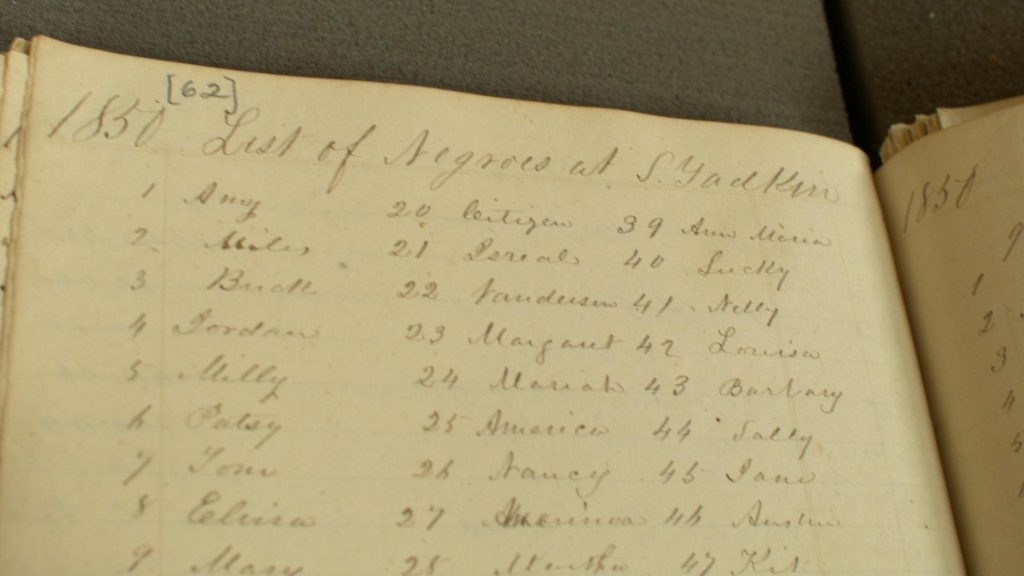 [62]
1850 List of Negroes at S. Yadkin
1 Amy 20 Citizen 39 Ann Miria
2 Miles 21 Isreal 40 Lucky
3 Buck 22 Vanderson 41 Nelly
4 Jordan 23 Margaret 42 Louisa
5 Milly 24 Mariah 43 Barbary
6 Patsy 25 America 44 Sally
7 Tom 26 Nancy 45 Jane
8 27 46 Austin
9 Mary 28 Martha 47 Kit
1850
9
1
2
3
4
5